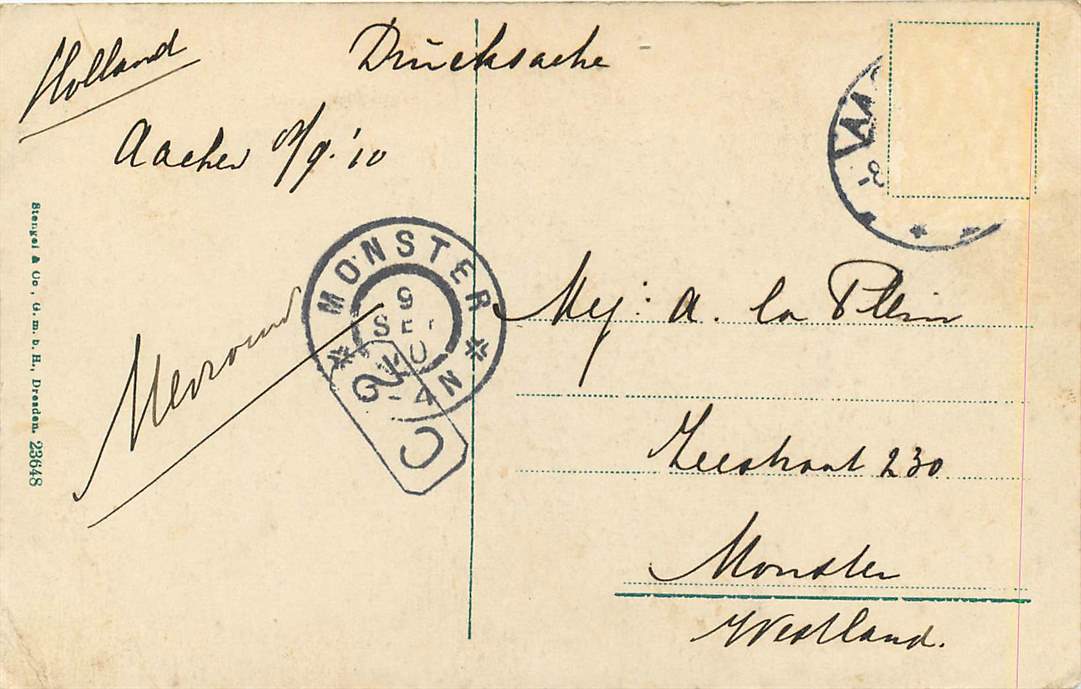 Holland
Drucksache
Aachen 8/9 '10
Stengel & Co., G.m.b.H., Dresden. 23648
MONSTER
9
SEP
10
-4N
2
C
AA
Mej: A. la Plein
Zeestraat 230
Monster
Westland.